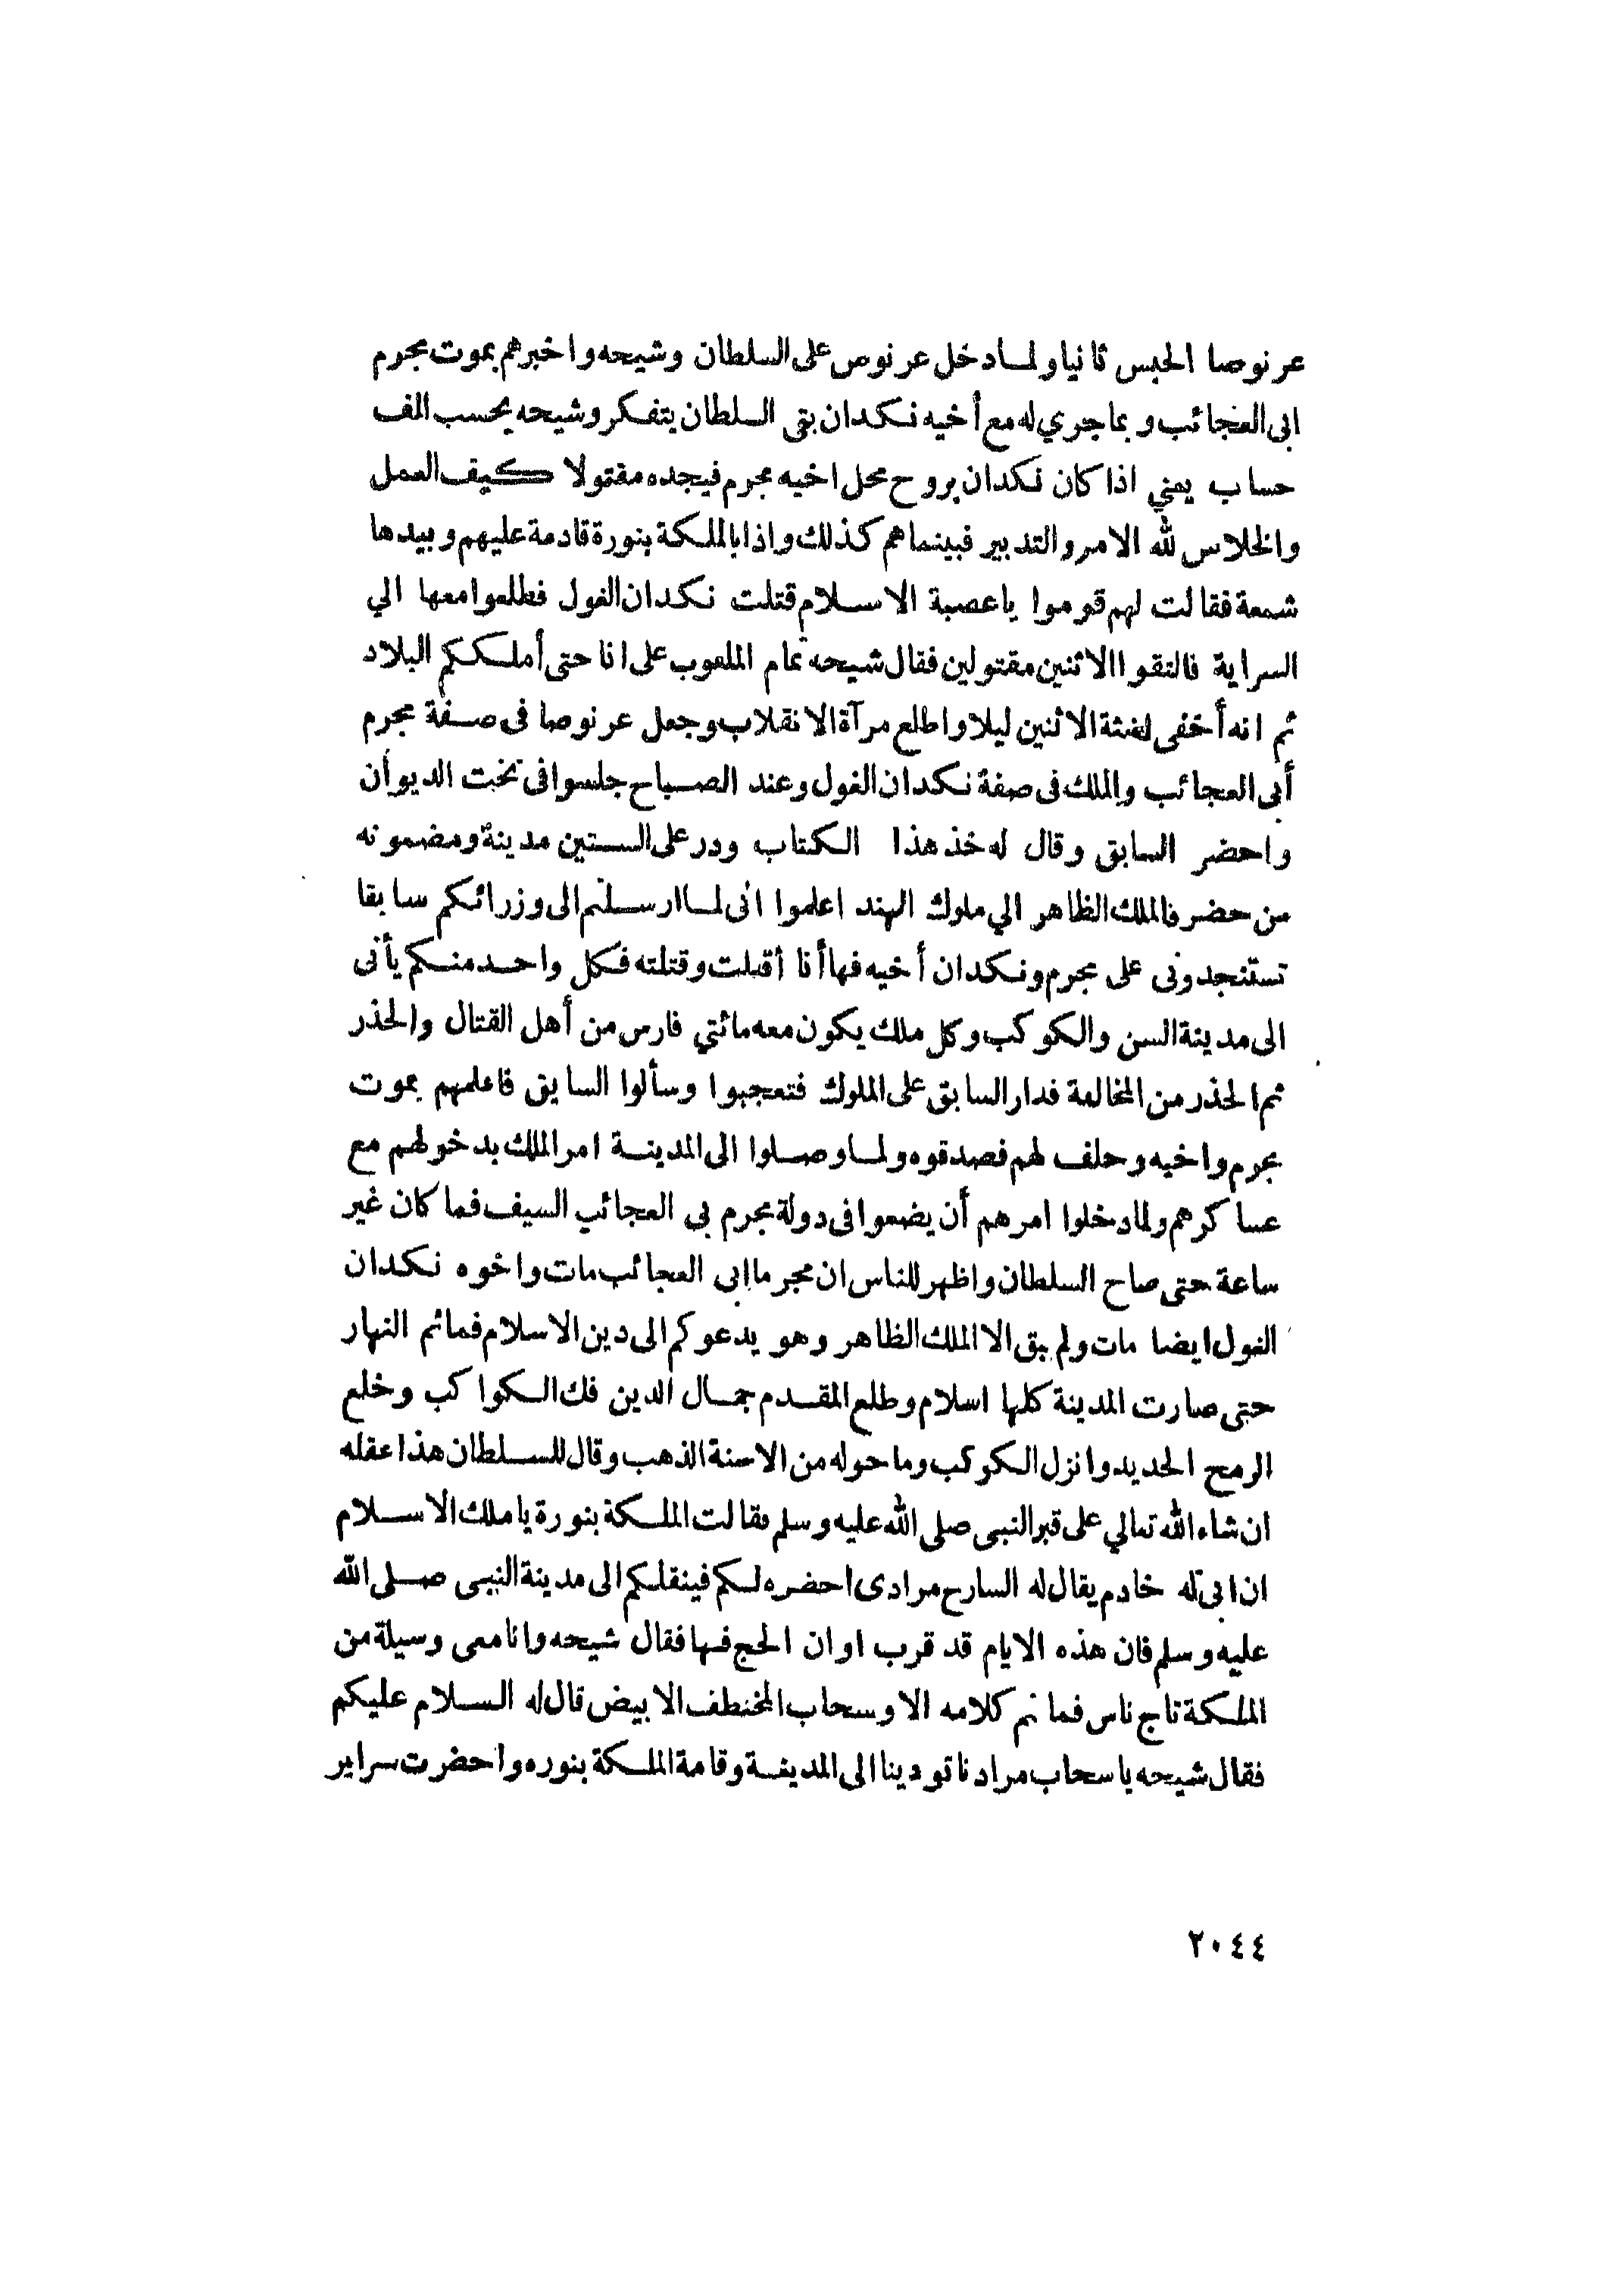 عرنوصا الحبس ثانيا ولما دخل عرنوص على السلطان وشيحه واخبرهم بموت مجرم
ابى العجائب وبما جري له مع أخيه نكدان بقى السلطان يتفكر وشيحه يحسب الف
حساب يعني اذا كان نكدان يروح محل اخيه مجرم فيجده مقتولا كيف العمل
والخلاس لله الامر والتدبير فبينما هم كذلك واذا بالملكة بنورة قادمة عليهم وبيدها
شمعة فقالت لهم قوموا ياعصبة الاسلام قتلت نكدان الغول فطلعوا معها الي
السراية فالتقوا الاثنين مقتولين فقال شيحه تمام الملعوب على انا حتى أملككم البلاد
ثم انه أخفى لغثة الاثنين ليلا واطلع مرآة الانقلاب وجعل عرنوصا فى صفة مجرم
أبى العجائب والملك فى صفة نكدان الغول وعند الصباح جلسوا فى تخت الديوان
واحضر السابق وقال له خذ هذا الكتاب ودر على الستين مدينة ومضمونه
من حضر فالملك الظاهر الي ملوك الهند اعلموا انى لما ارسلتم الى وزرائكم سابقا
تستنجدونى على مجرم ونكدان أخيه فها أنا أقبلت وقتلته فكل واحد منكم يأتى
الى مدينة السن والكوكب وكل ملك يكون معه مائتي فارس من أهل القتال والحذر
ثم الحذر من المخالفة فدار السابق على الملوك فتعجبوا وسألوا السابق فاعلمهم بموت
مجرم واخيه وحلف لهم فصدقوه ولما وصلوا الى المدينة امر الملك بدخولهم مع
عساكرهم ولما دخلوا امرهم أن يضعوا فى دولة مجرم بى العجائب السيف فما كان غير
ساعة حتى صاح السلطان واظهر للناس ان مجرما ابى العجائب مات واخوه نكدان
الغول ايضا مات ولم يبق الا الملك الظاهر وهو يدعوكم الى دين الاسلام فما تم النهار
حتى صارت المدينة كلها اسلام وطلع المقدم جمال الدين فك الكواكب وخلع
الرمح الحديد وانزل الكوكب وما حوله من الاسنة الذهب وقال للسلطان هذا عقله
ان شاء الله تعالي على قبر النبى صلى الله عليه وسلم فقالت الملكة بنورة ياملك الاسلام
ان ابى له خادم يقال له السارح مرادى احضره لكم فينقلكم الى مدينة النبى صلى الله
عليه وسلم فان هذه الايام قد قرب اوان الحج فيها فقال شيحه وانا معى وسيلة من
الملكة تاج ناس فما تم كلامه الا وسحاب المخنطف الابيض قال له السلام عليكم
فقال شيحه ياسحاب مرادنا تودينا الى المدينة وقامة الملكة بنوره واحضرت سراير
٢٠٤٤